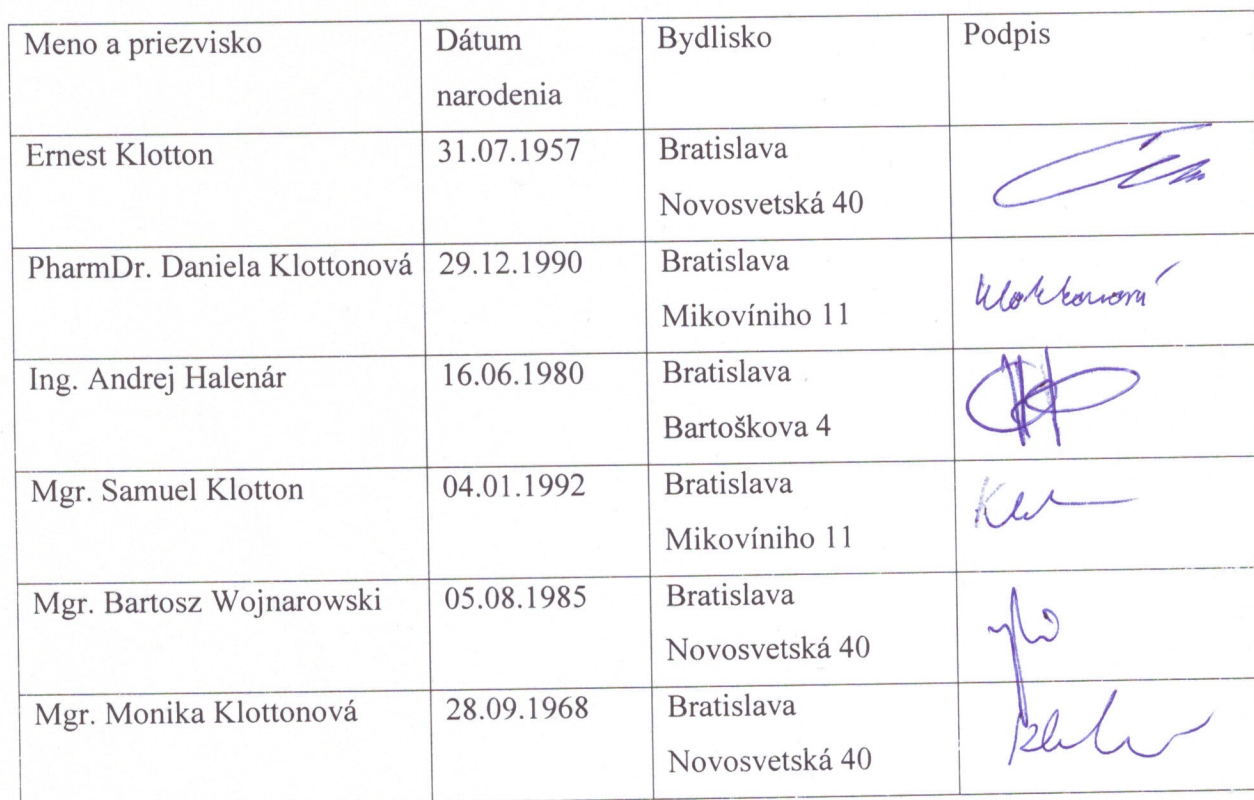 Meno a priezvisko
Dátum
narodenia
Bydlisko
Podpis
Ernest Klotton
31.07.1957
Bratislava
Novosvetská 40
PharmDr. Daniela Klottonová
29.12.1990
Bratislava
Mikovíniho 11
Klottonová
Ing. Andrej Halenár
16.06.1980
Bratislava
Bartoškova 4
Mgr. Samuel Klotton
04.01.1992
Bratislava
Mikovíniho 11
Mgr. Bartosz Wojnarowski
05.08.1985
Bratislava
Novosvetská 40
Mgr. Monika Klottonová
28.09.1968
Bratislava
Novosvetská 40